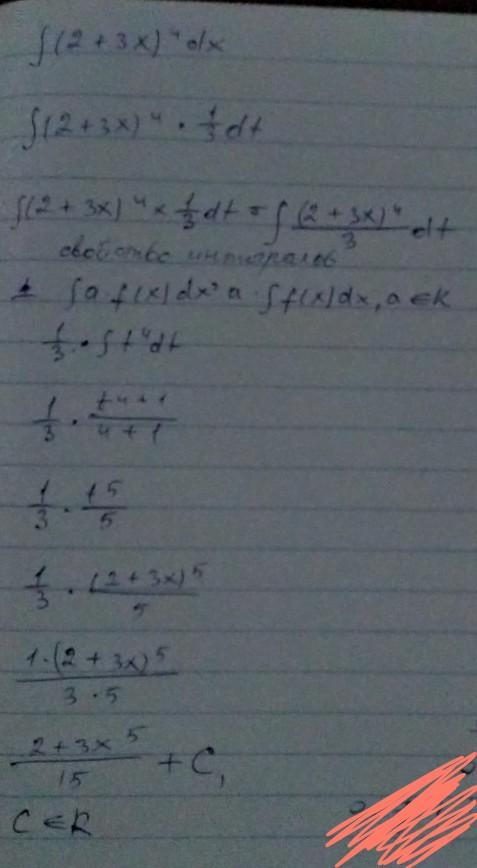 ∫(2 + 3x)⁴ dx
∫(2 + 3x)⁴ · 1/3 dt
∫(2 + 3x)⁴ × 1/3 dt = ∫ (2 + 3x)⁴/3 dt
свойство интегралов
∫a f(x) dx = a · ∫f(x) dx, a ∈ K
1/3 · ∫t⁴dt
1/3 · t⁴⁺¹/4 + 1
1/3 · t⁵/5
1/3 · (2 + 3x)⁵/5
1 · (2 + 3x)⁵/3 · 5
2 + 3x⁵/15 + C,
C ∈ R